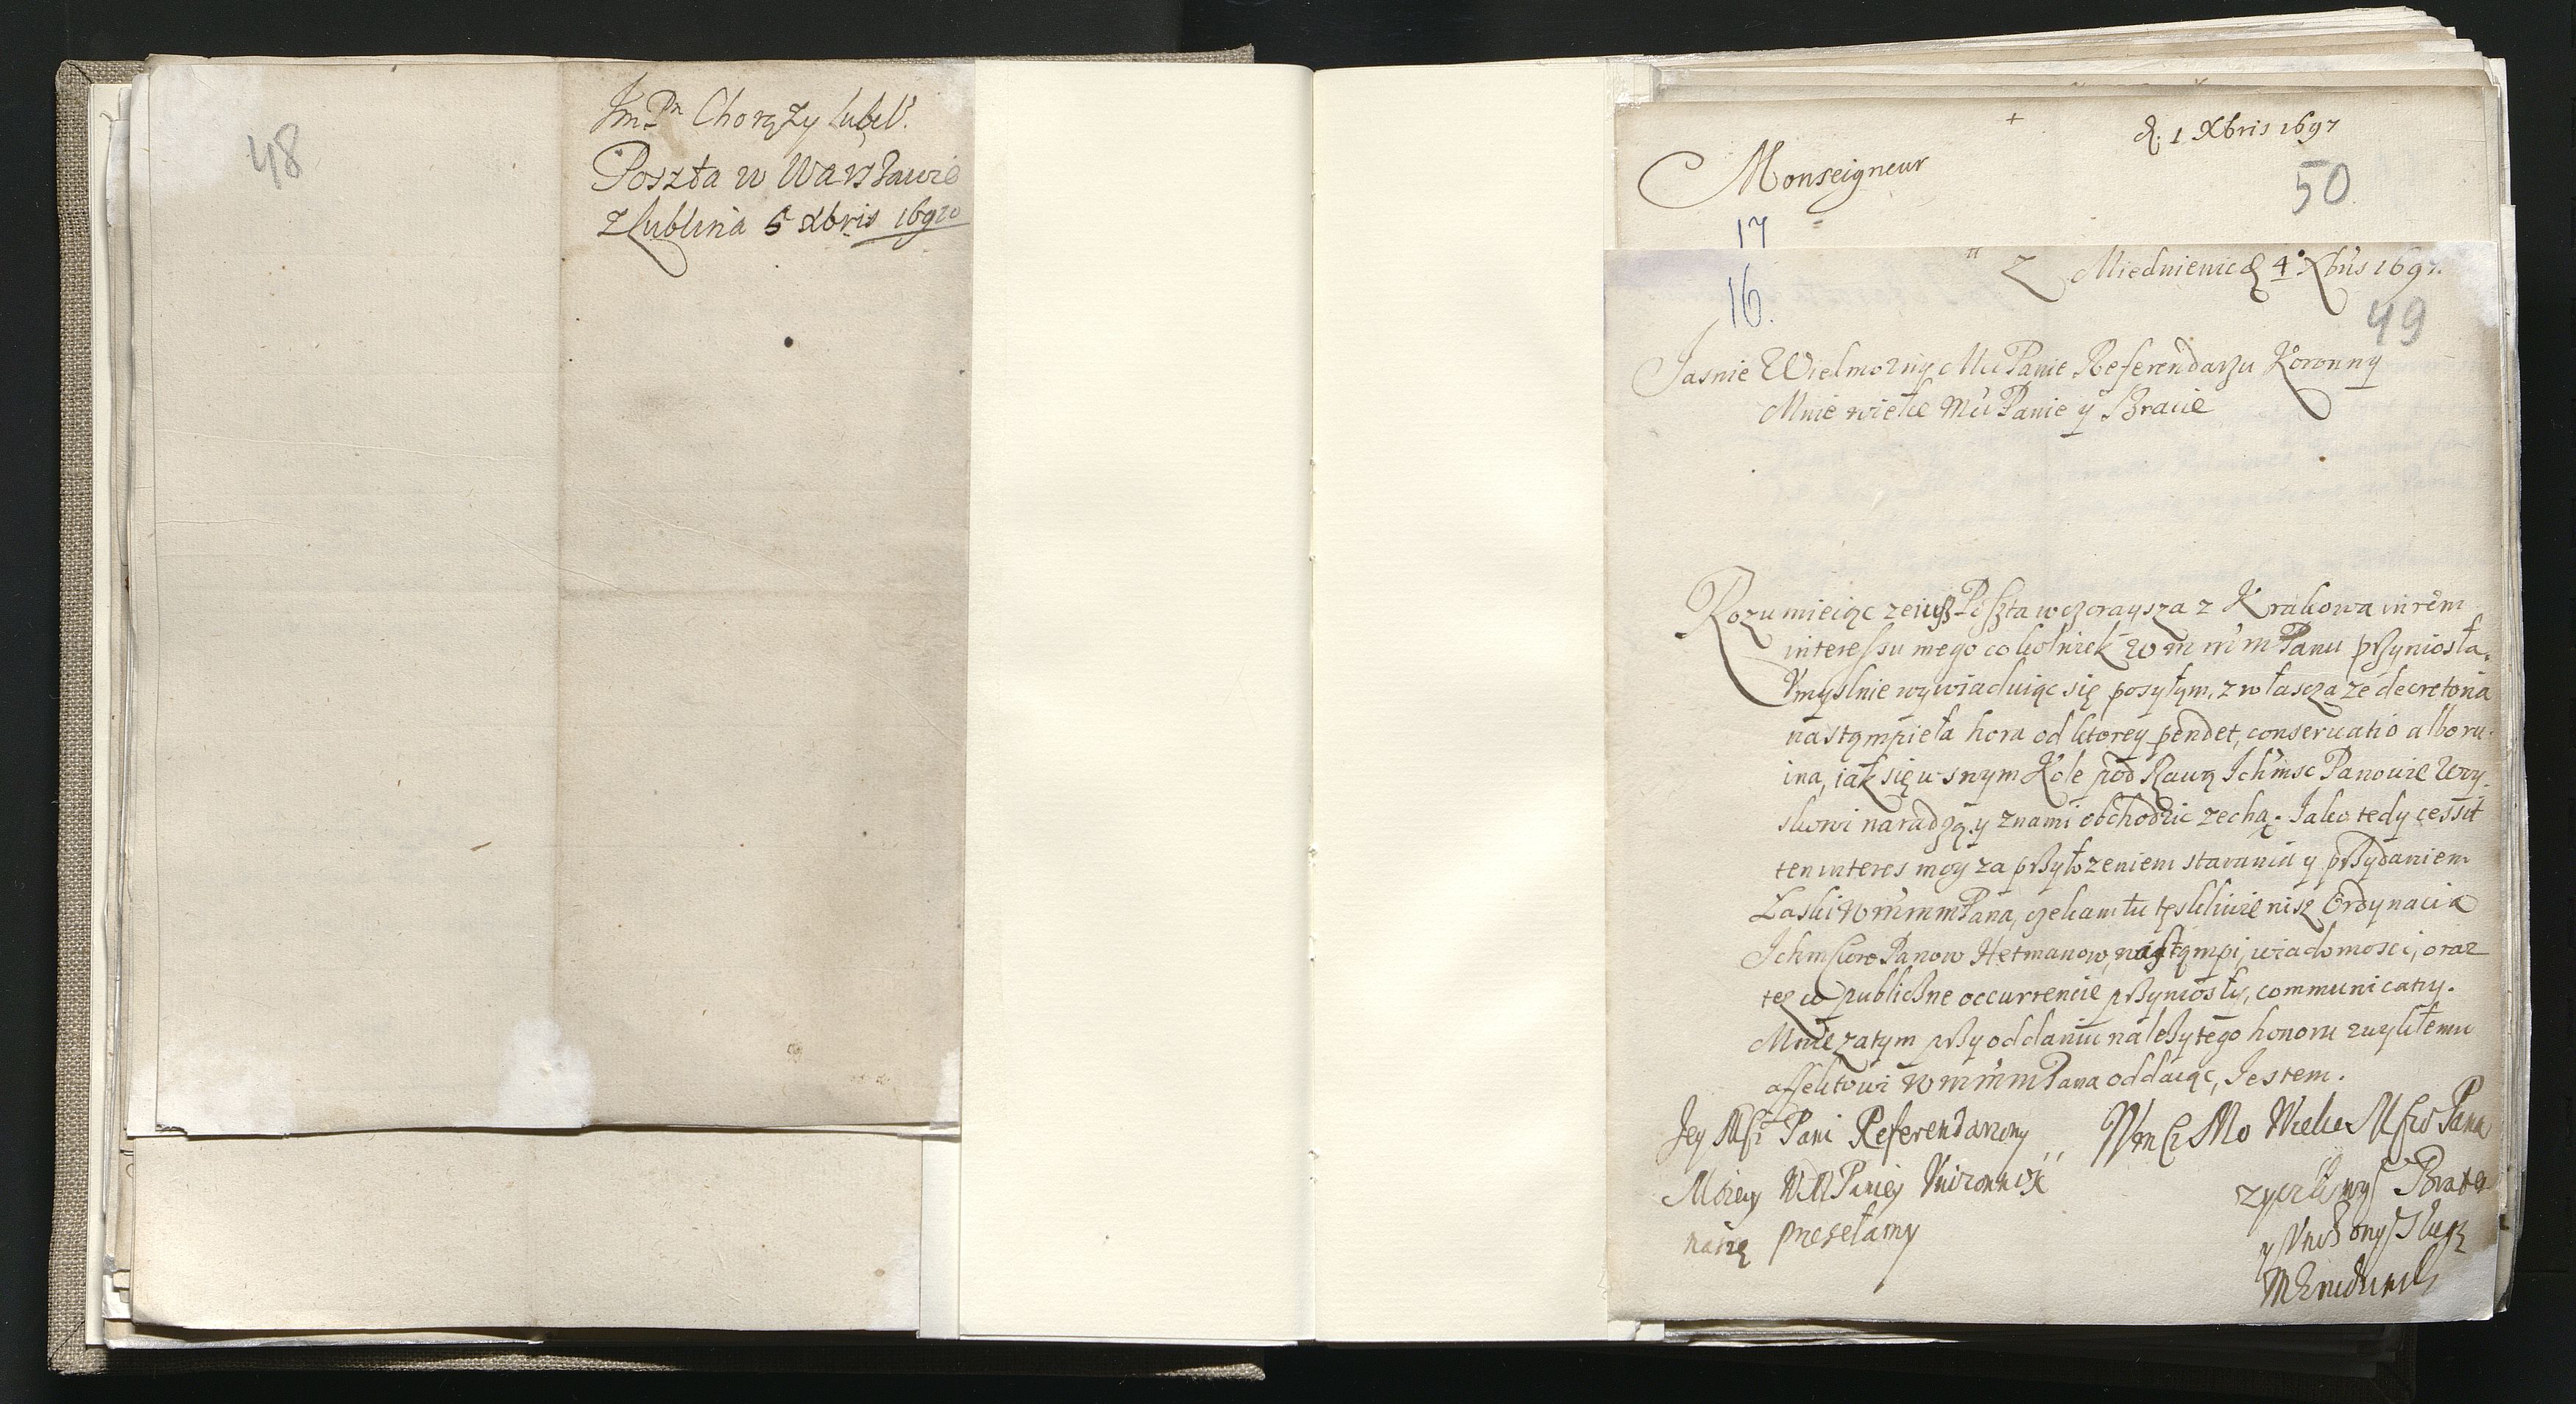 48
Jm Pn Chorąży lubel:
Poszta w Warszawie
z Lublina 5 Xbris 1697
+
d. 1 Xbris 1697
Monseigneur
50
17
Z Miedniewic d 4 Xbris 1697
16.
49
Jasnie Wielmozny Mci Panie Referendarzu Koronny
Mnie wielce Mci Panie y Bracie
Rozumieiąc ze iusz Poszta wczoraysza z Krakowa in rem
interessu mego cokolwiek W m m m Panu przyniosła,
Vmyslnie wywiaduiąc się posyłym, zwłascza ze decretoria
nastąmpieła hora od ktorey pendet, conseruatio albo ru-
ina, iak się w snym Kole pod Rawą Ichmsc Panowie Woy-
skowi naradzą y znami obchodzic zechą. Jako tedy cessit
ten interes moy za przyłozeniem starania y przydaniem
Łaski W m m m Pana, czekam tu teskliwie nisz Erdynacia
Ichm Panow Hetmanow, nastąmpi, wiadomosci, oraz
tez co publiczne occurrencie przyniosły, communicaty.
Mnie zatym przy oddaniu nalezytego honoru zwykłemu
affektowi W m m m Pana oddaiąc, Jestem.
Jey Msci Pani Referendarzowy
Moiey W M Paniey Vnizonosc
naszę presełamy
Wm Mo Wielce Mscio Pana
zyczliwy Brat
y Vnizony Sługa